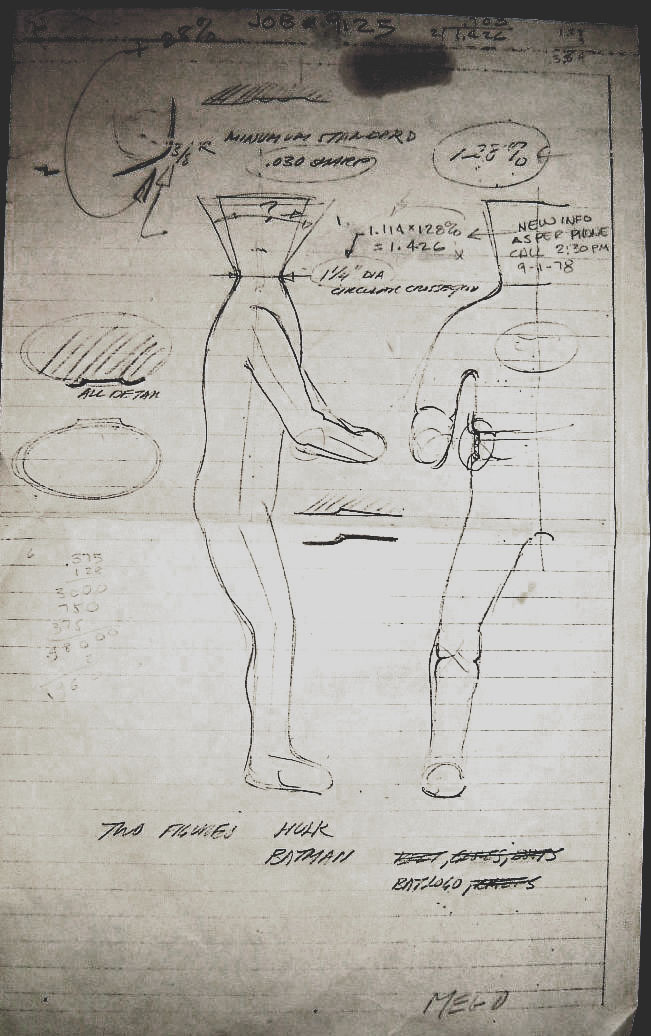 28%
JOB # 9125
2)1.426
3/8 R
MINIMUM STANDARD
.030 SHARP
128%
?
1.114 x 128%
= 1.426
NEW INFO
AS PER PHONE
CALL 2:30 PM
9-1-78
1 1/4" DIA
CIRCULAR CROSSECTION
ALL DETAIL
.375
128
3000
750
375
.48000
TWO FIGURES HULK
BATMAN
BELT,
BATLOGO,
MEGO